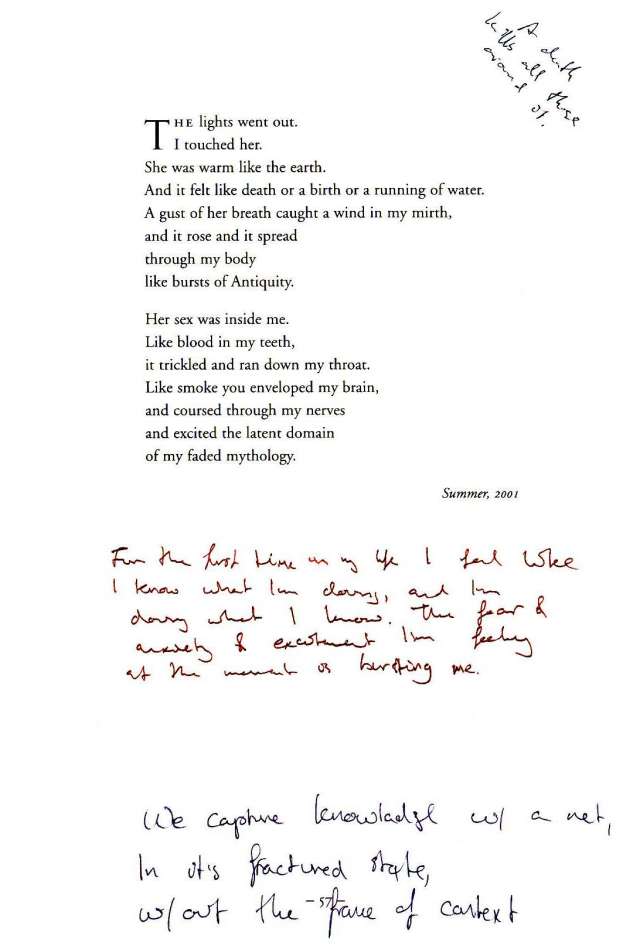 A death
kills all those
around it.
THE lights went out.
I touched her.
She was warm like the earth.
And it felt like death or a birth or a running of water.
A gust of her breath caught a wind in my mirth,
and it rose and it spread
through my body
like bursts of Antiquity.
Her sex was inside me.
Like blood in my teeth,
it trickled and ran down my throat.
Like smoke you enveloped my brain,
and coursed through my nerves
and excited the latent domain
of my faded mythology.
Summer, 2001
For the first time in my life I feel like
I know what I'm doing, and I'm
doing what I know. The fear &
anxiety & excitement I'm feeling
at the moment is bursting me.
We capture knowladge w/ a net,
In it's fractured state,
w/out the frame of context
-57-